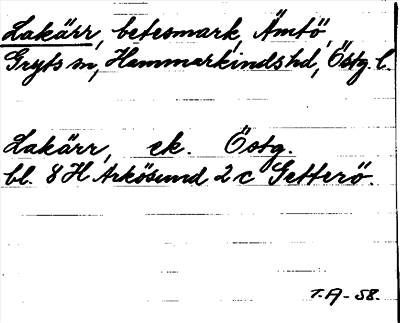 Lakärr, betesmark, Ämtö,
Gryts sn, Hammarkinds hd, Östg. l.
Lakärr, ek. Östg.
bl. 8 H Arkösund 2 c Setterö.
T.A-58.